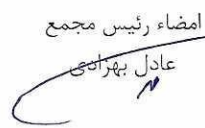 امضاء رئیس مجمع
عادل بهزادی